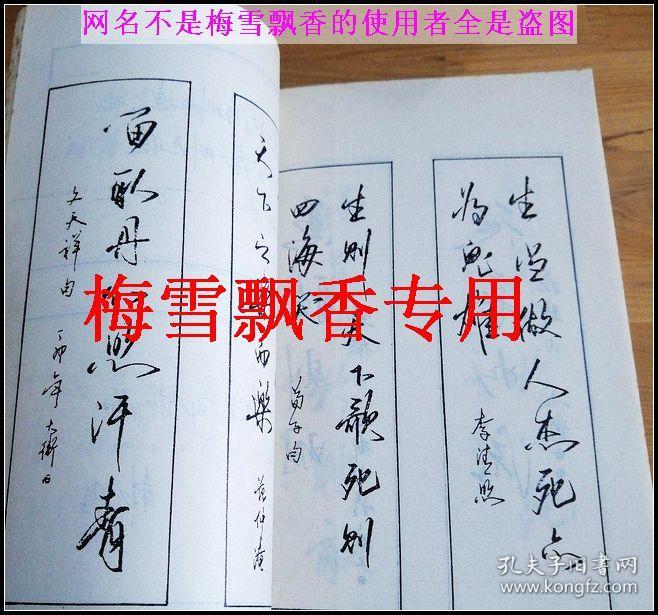 网名不是梅雪飘香的使用者全是盗图
生當做人杰死亦
為鬼雄
李清照
生則天下歌死則
四海哭
荀子句
天下之 而樂
范仲淹
留取丹心照汗青
文天祥句
丁卯年大衛
梅雪飘香专用
孔夫子旧书网
www.kongfz.com